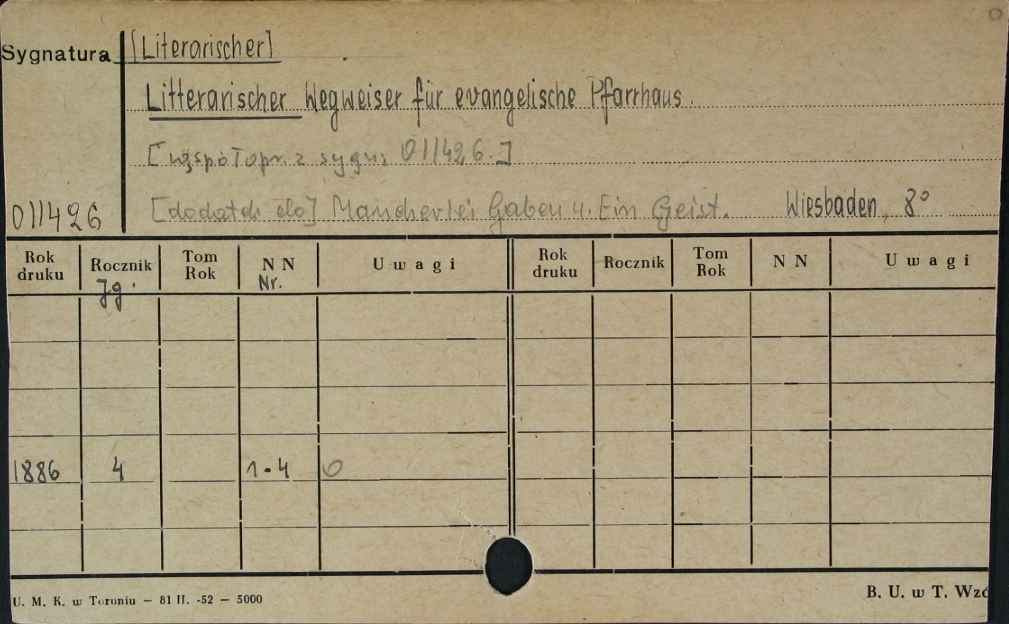 Sygnatura [Literarischer]
Litterarischer Wegweiser für evangelische Pfarrhaus.
[współopr. z sygn. 011426.]
011426 [dodatek do] Mancherlei Gaben u. Ein Geist. Wiesbaden, 8°
Rok druku Rocznik Tom Rok NN Uwagi Rok druku Rocznik Tom Rok NN Uwagi
Jg. Nr.
1886 4 1-4 0
U. M. K. w Toruniu — 81 II. -52 — 5000 B. U. w T. Wzó